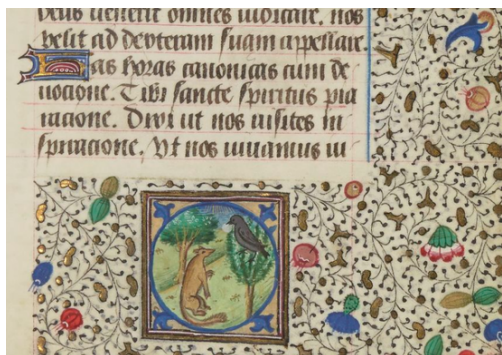 deus uenerit omnes iudicare. nos
velit ad dexteram suam appellare.
Has horas canonicas cum de
uocione. Tibi sancte spiritus pia
racione. Dixi ut nos uisites in
spiracione. Vt nos uiuamus iu